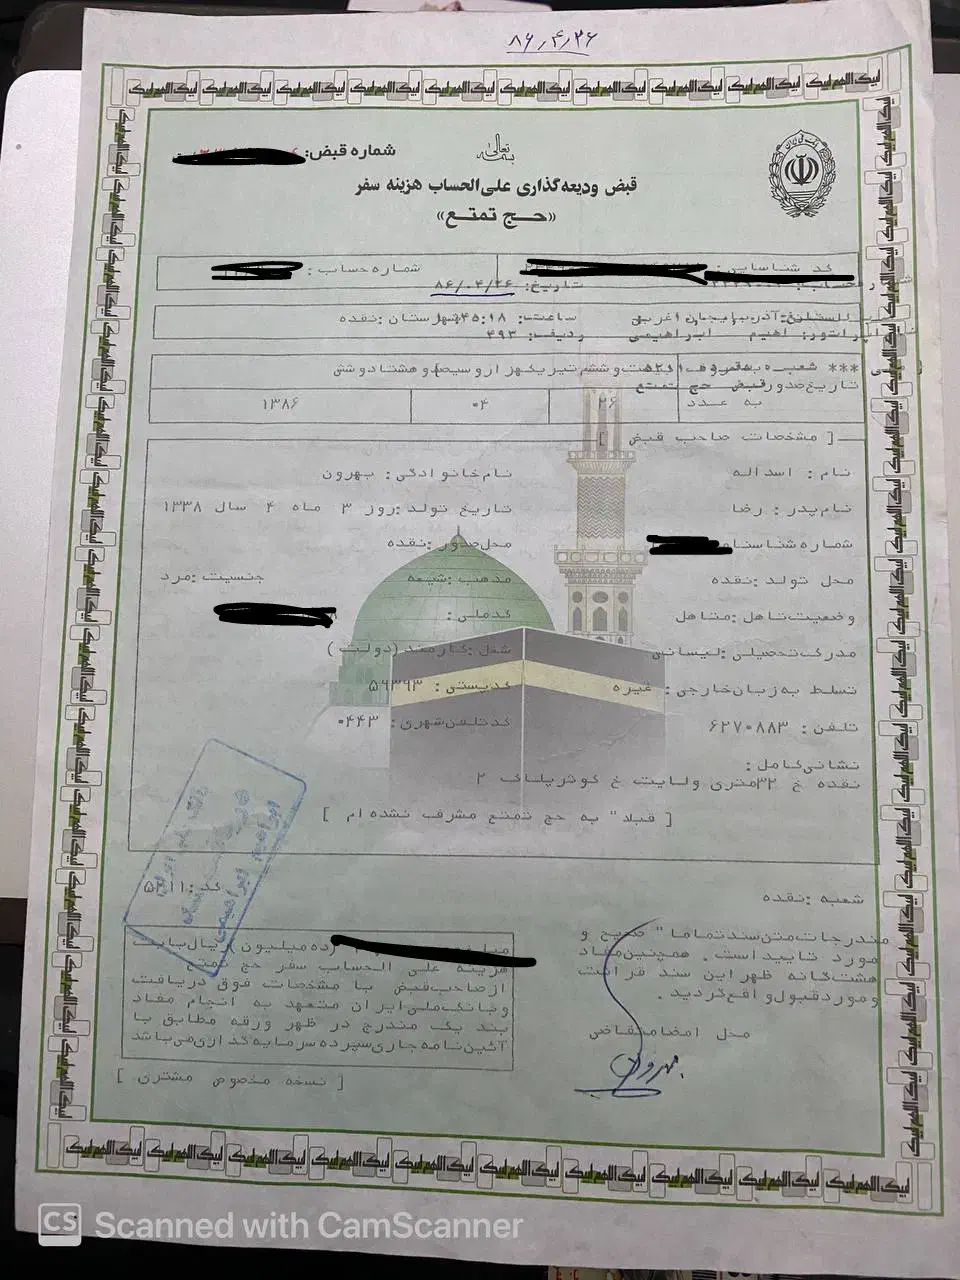 ۸۶٫۴٫۲۶
بسمه تعالی
شماره قبض:
قبض ودیعه گذاری علی الحساب هزینه سفر
«حج تمتع»
کد شناسایی :
شماره حساب :
تاریخ: ۸۶/۰۴/۲۶
استان: آذربایجان غربی
ساعت: ۱۸:
شهرستان: نقده
اپراتور: ابراهیمی
ردیف: ۴۹۳
تاریخ صدور قبض حج تمتع
به حروف : بیست و ششم تیر یکهزار و سیصد و هشتاد و شش
به عدد ۲۶ ۰۴ ۱۳۸۶
[ مشخصات صاحب قبض ]
نام : اسداله
نام خانوادگی : بهرون
نام پدر : رضا
تاریخ تولد : روز ۳ ماه ۴ سال ۱۳۳۸
شماره شناسنامه
محل صدور : نقده
محل تولد : نقده
مذهب : شیعه
جنسیت : مرد
وضعیت تاهل : متاهل
کدملی :
مدرک تحصیلی : لیسانس
شغل : کارمند (دولت )
تسلط به زبان خارجی : غیره
کدپستی : ۵۶۳۹۳
تلفن : ۶۲۷۰۸۸۳
کد تلفن شهری : ۰۴۴۳
نشانی کامل :
نقده خ ۳۲متری ولایت خ کوثر پلاک ۲
[ قبلا" به حج تمتع مشرف نشده ام ]
شعبه : نقده
کد : ۵۲۱۱
مندرجات متن سند تماما" صحیح و
مورد تایید است . همچنین مفاد
هشت گانه ظهر این سند قرائت
و مورد قبول واقع گردید .
محل امضا متقاضی
بهرون
(ده میلیون) ریال بابت
هزینه علی الحساب سفر حج تمتع
از صاحب قبض با مشخصات فوق دریافت
و بانک ملی ایران متعهد به انجام مفاد
بند یک مندرج در ظهر ورقه مطابق با
آئین نامه جاری سپرده سرمایه گذاری می باشد
[ نسخه مخصوص مشتری ]
لبیک اللهم لبیک
CS Scanned with CamScanner